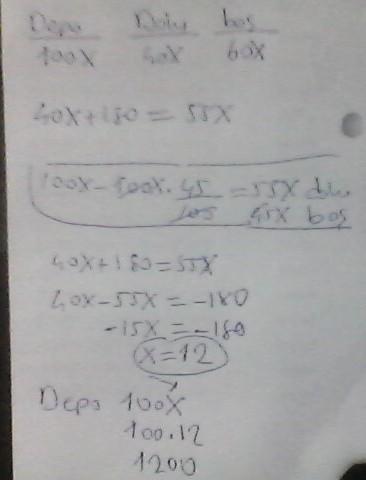 Depo Dolu boş
100X 40X 60X
40X+180 = 55X
100X - 100X. 45/100 = 55X dolu
45X boş
40X+180=55X
40X-55X = -180
-15X = -180
X=12
Depo 100X
100.12
1200